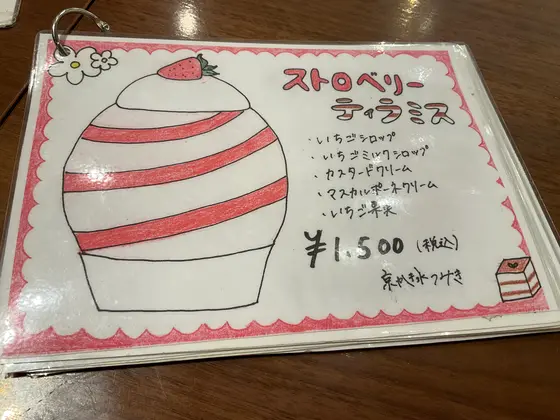 ストロベリー
ティラミス
・いちごシロップ
・いちごミルクシロップ
・カスタードクリーム
・マスカルポーネクリーム
・いちご果実
¥1,500（税込）
京かき氷つみき